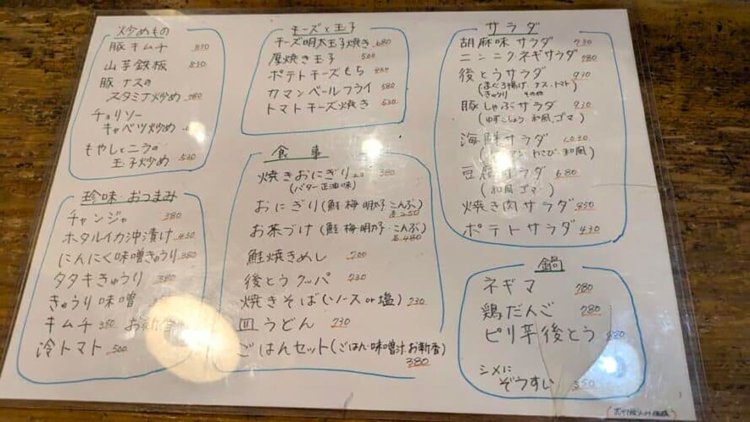 炒めもの
豚キムチ
山芋鉄板
豚ナスの
スタミナ炒め
チョリソー
キャベツ炒め
もやしとニラの
玉子炒め
珍味 おつまみ
チャンジャ 380
ホタルイカ沖漬け 430
にんにく味噌きゅうり 380
タタキきゅうり 380
きゅうり味噌
キムチ 350 お新香
冷トマト 500
チーズと玉子
チーズ明太玉子焼き 680
厚焼き玉子 500
ポテトチーズもち
カマンベールフライ 580
トマトチーズ焼き 530
食事
焼きおにぎり 380
(バター醤油味)
おにぎり(鮭 梅 明太子 こんぶ)
各250
お茶づけ(鮭 梅 明太子 こんぶ)
各480
鮭焼きめし 700
後とうクッパ 730
焼きそば(ソース or 塩) 730
皿うどん 730
ごはんセット(ごはん 味噌汁 お新香)
380
サラダ
胡麻味サラダ 730
ニンニクネギサラダ 780
後とうサラダ 930
(ナス、トマト)
きゅうり
豚しゃぶサラダ 930
(ゆずこしょう 和風 ゴマ)
海鮮サラダ
わさび 和風)
豆腐サラダ 680
(和風 ゴマ)
焼き肉サラダ 850
ポテトサラダ 430
鍋
ネギマ 780
鶏だんご 780
ピリ辛後とう
シメに
ぞうすい 350